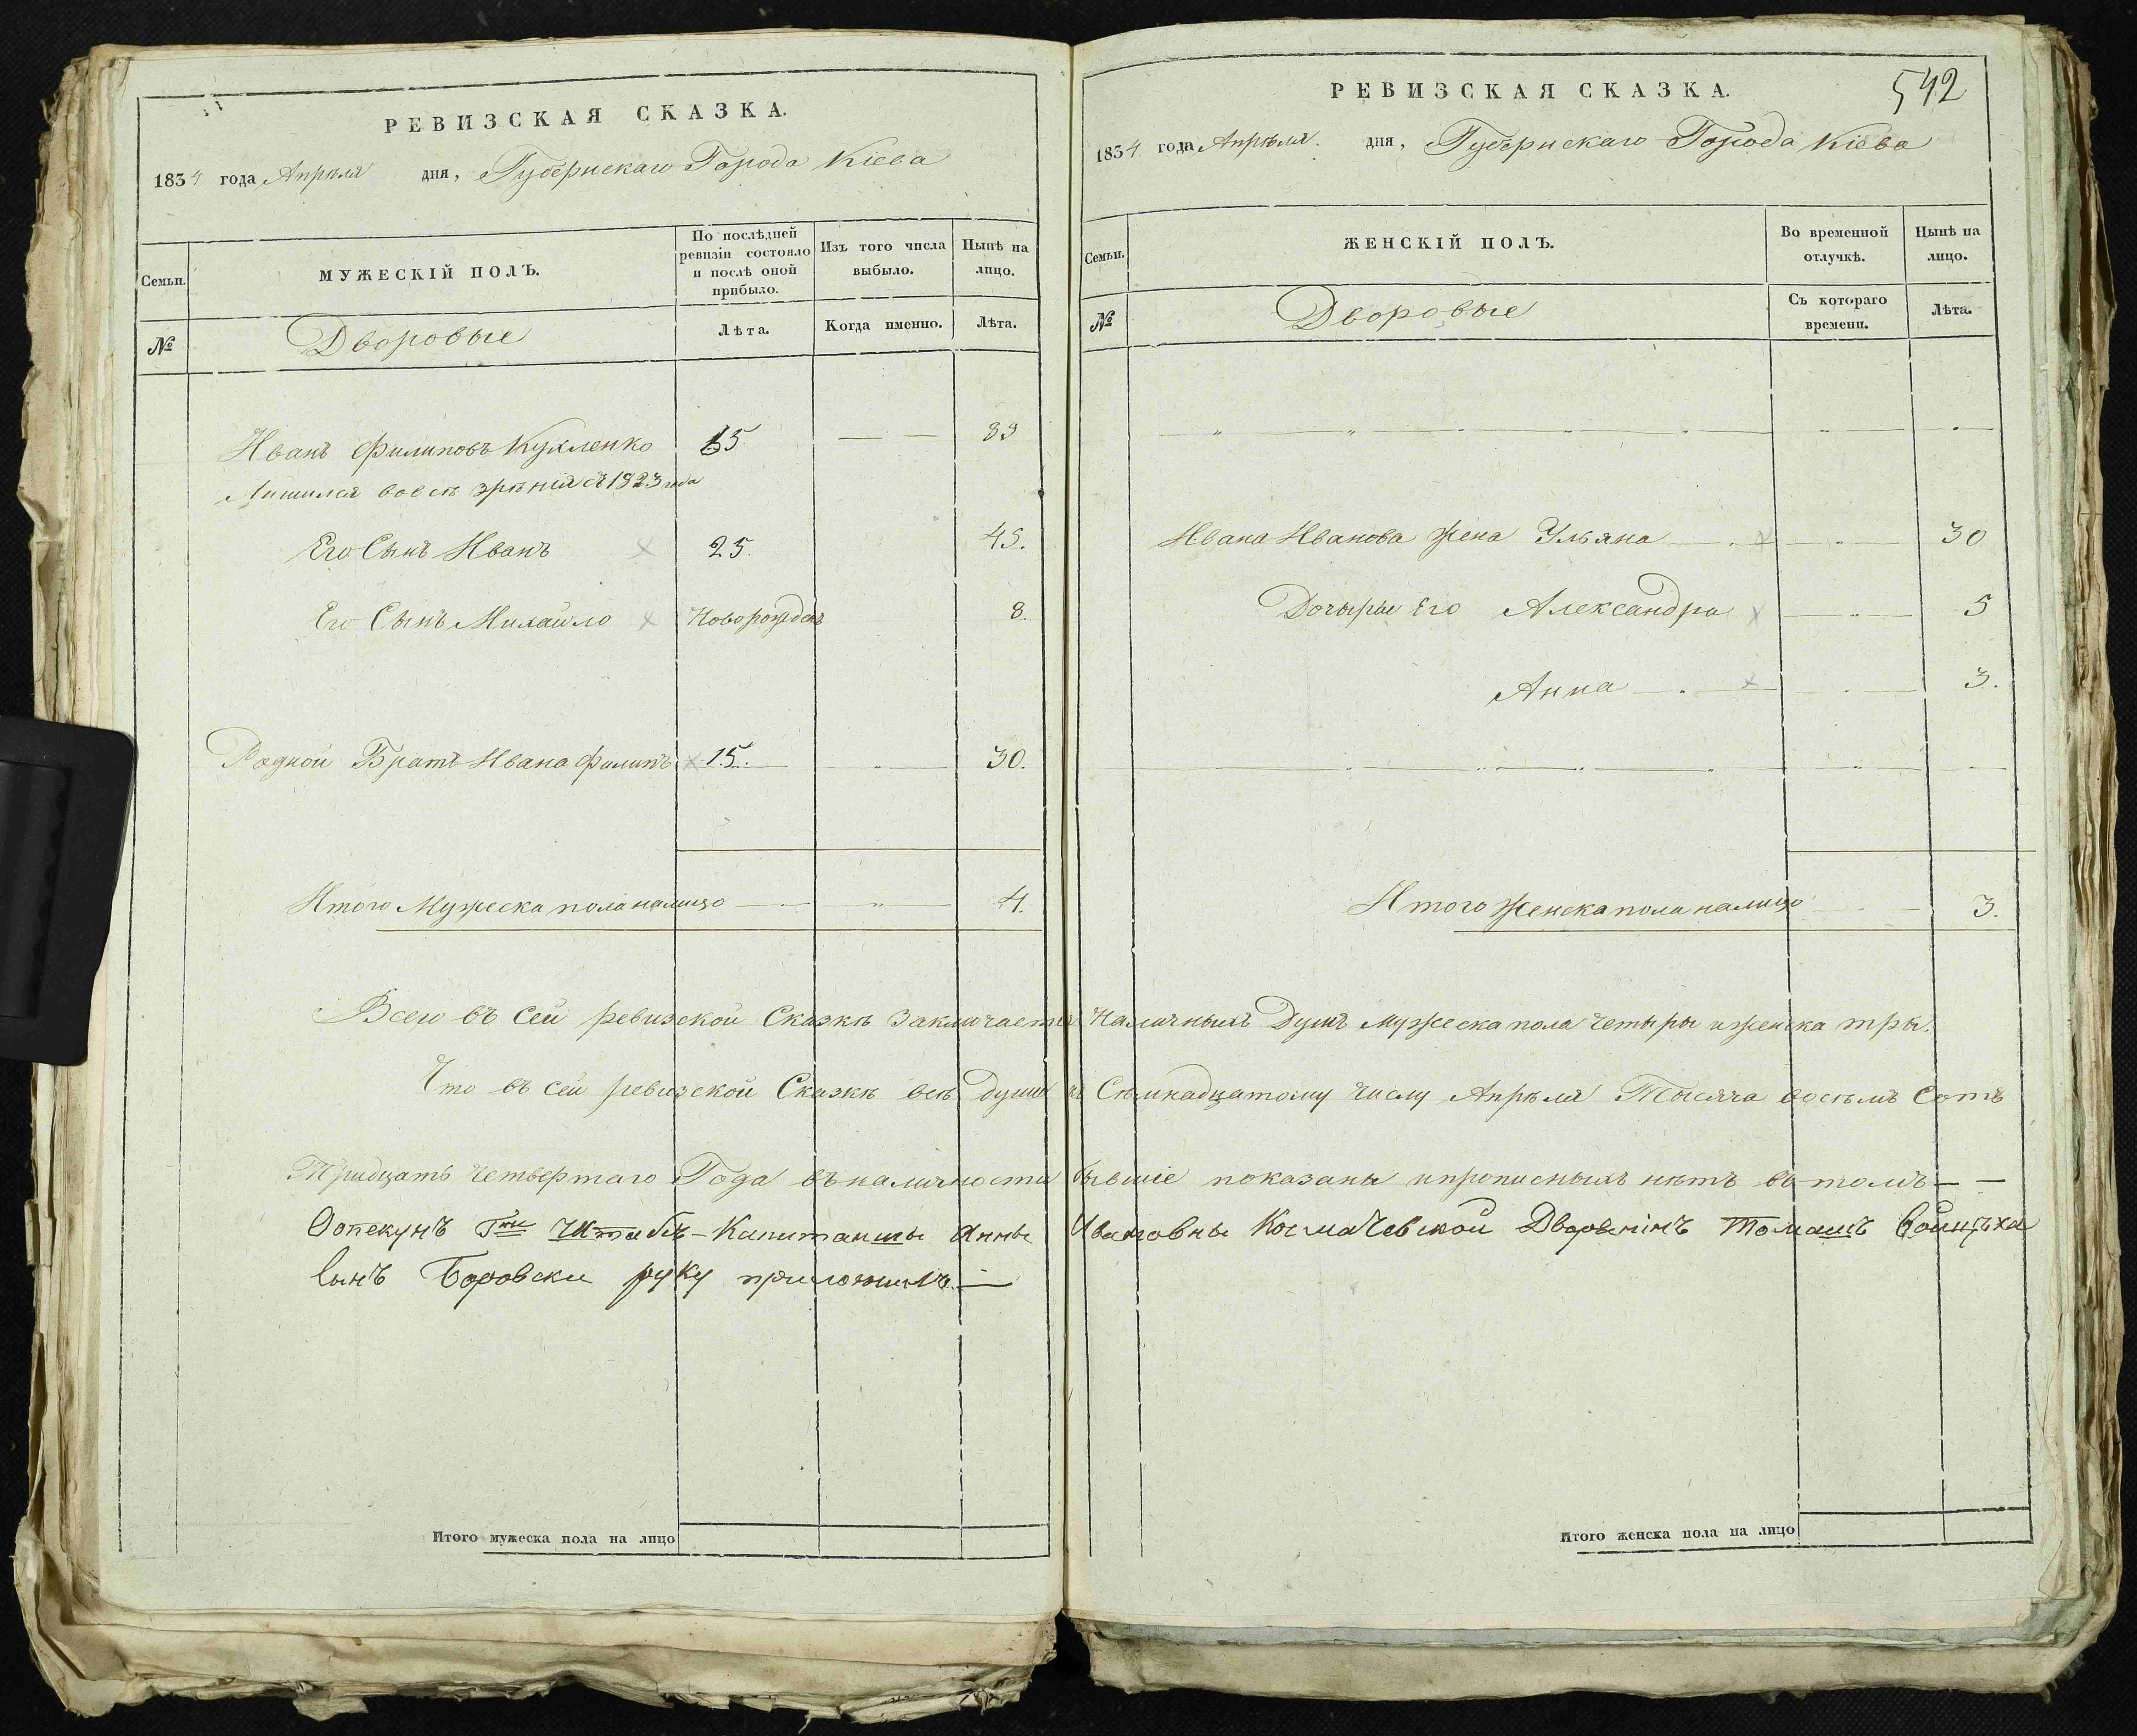 РЕВИЗСКАЯ СКАЗКА.
1834 года Апрѣля дня, Губернскаго Города Кіева
Семьи.
МУЖЕСКІЙ ПОЛЪ.
По послѣдней ревизіи состояло и послѣ оной прибыло.
Изъ того числа выбыло.
Нынѣ на лицо.
№
Дворовые
Лѣта.
Когда именно.
Лѣта.
Иванъ Филиповъ Кухленко 65 83
Лишился вовсѣ зрѣнія съ 1823 года
Его Сынъ Иванъ 25. 45.
Его Сынъ Михайло Новорожденъ 8.
Родной Братъ Ивана Филипъ 15. 30.
Итого Мужеска пола налицо 4.
Всего въ сей ревизской Сказкѣ Заключается
Что въ сей ревизской Сказкѣ всѣ души къ
Тридцать четвертаго Года въ наличности
Оопекунъ Гжи Штабъ-Капитанши Анны
Сынъ Боровски руку приложилъ.
Итого мужеска пола на лицо
542
РЕВИЗСКАЯ СКАЗКА.
1834 года Апрѣля. дня, Губернскаго Города Кіева
Семьи.
ЖЕНСКІЙ ПОЛЪ.
Во временной отлучкѣ.
Нынѣ на лицо.
№
Дворовые
Съ котораго времени.
Лѣта.
Ивана Иванова жена Ульяна 30
Дочыры Его Александра 5
Анна 3.
Итого женска пола налицо 3.
Наличныхъ Душъ мужеска пола четыры и женска тры.
Сѣмнадцатому числу Апрѣля Тысяча восѣмъ Сотъ
бывшіе показаны и прописныхъ нѣтъ въ томъ
Ивановны Космачевской Дворенінъ Томашъ Войцѣха
Итого женска пола на лицо